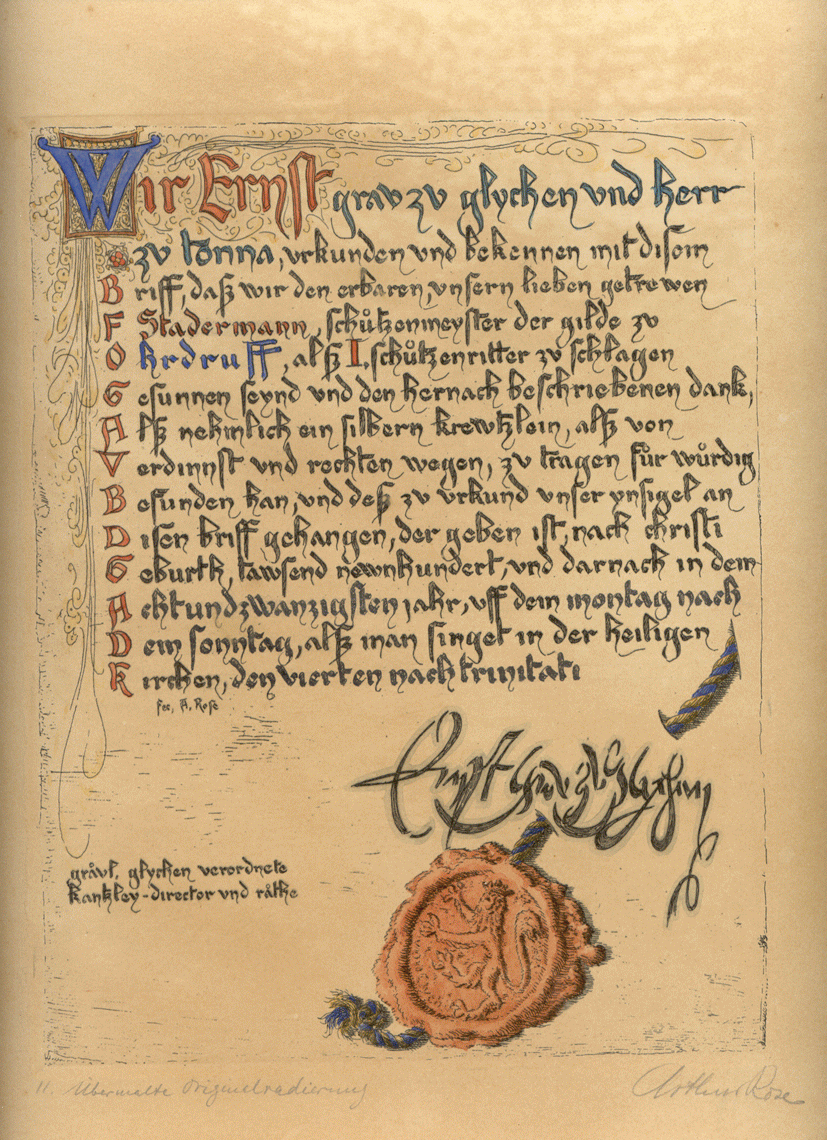 Wir Ernst grav zv glychen vnd herr
zv tonna, vrkunden vnd bekennen mit disem
Briff, daß wir den erbaren, vnsern lieben getrewen
F Stadermann, schůtzenmeyster der gilde zv
Ohrdruff, alß I. schůtzenritter zv schlagen
Gesunnen seynd vnd den hernach beschriebenen dank,
Alß nehmlich ein silbern krewtzlein, alß von
Verdinnst vnd rechten wegen, zv tragen fůr wůrdig
Befunden han, vnd deß zv vrkund vnser ynsigel an
Disen briff gehangen, der geben ist, nach christi
Geburth, tawsend newnhundert, vnd darnach in dem
Achtundzwanzigsten jahr, vff dem montag nach
Dem sonntag, alß man singet in der heiligen
Kirchen, den vierten nach trinitati
fec. A. Rose
Ernst Grav zv Glychen
grävl. glychen verordnete
kantzley-director vnd räthe
11. Übermalte Originalradierung
Arthur Rose